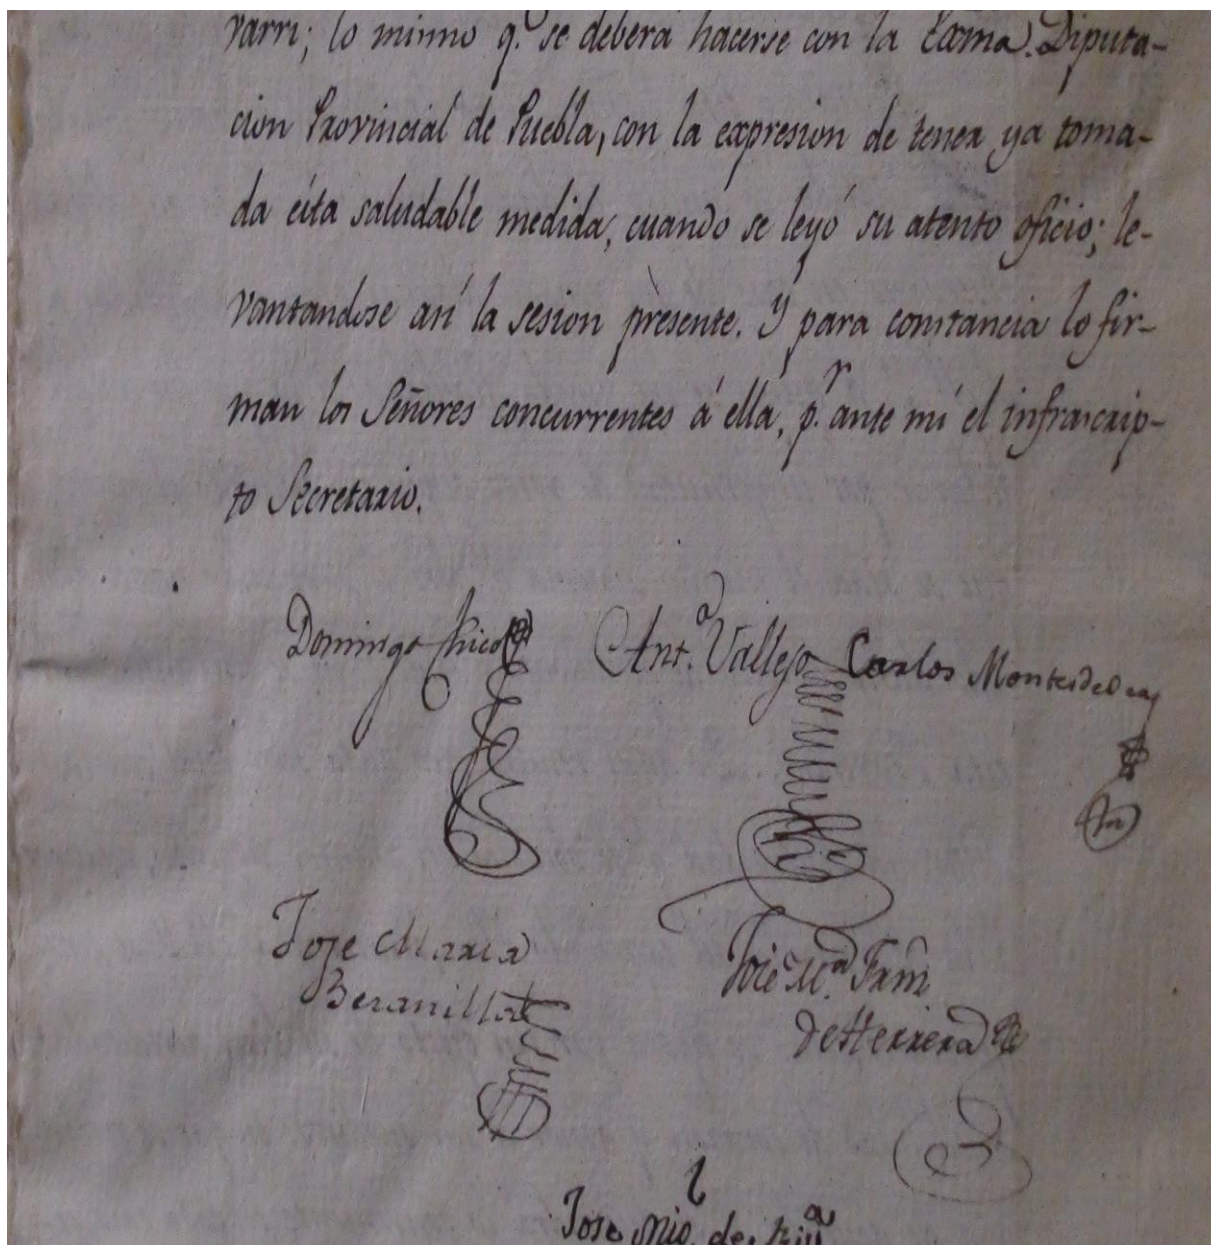 varri; lo mismo q.e se deberá hacerse con la Exma. Diputa-
cion Provincial de Puebla, con la expresion de tener ya toma-
da ésta saludable medida, cuando se leyó su atento oficio; le-
vantandose así la sesion presente. Y para constancia lo fir-
man los Señores concurrentes á ella, p.r ante mí el infrascrip-
to Secretario.
Domingo Chico
Ant.o Vallejo
Carlos Montesdeoca
Jose Maria
Beranilla
José M.a Fern
de Herrera
Jose de